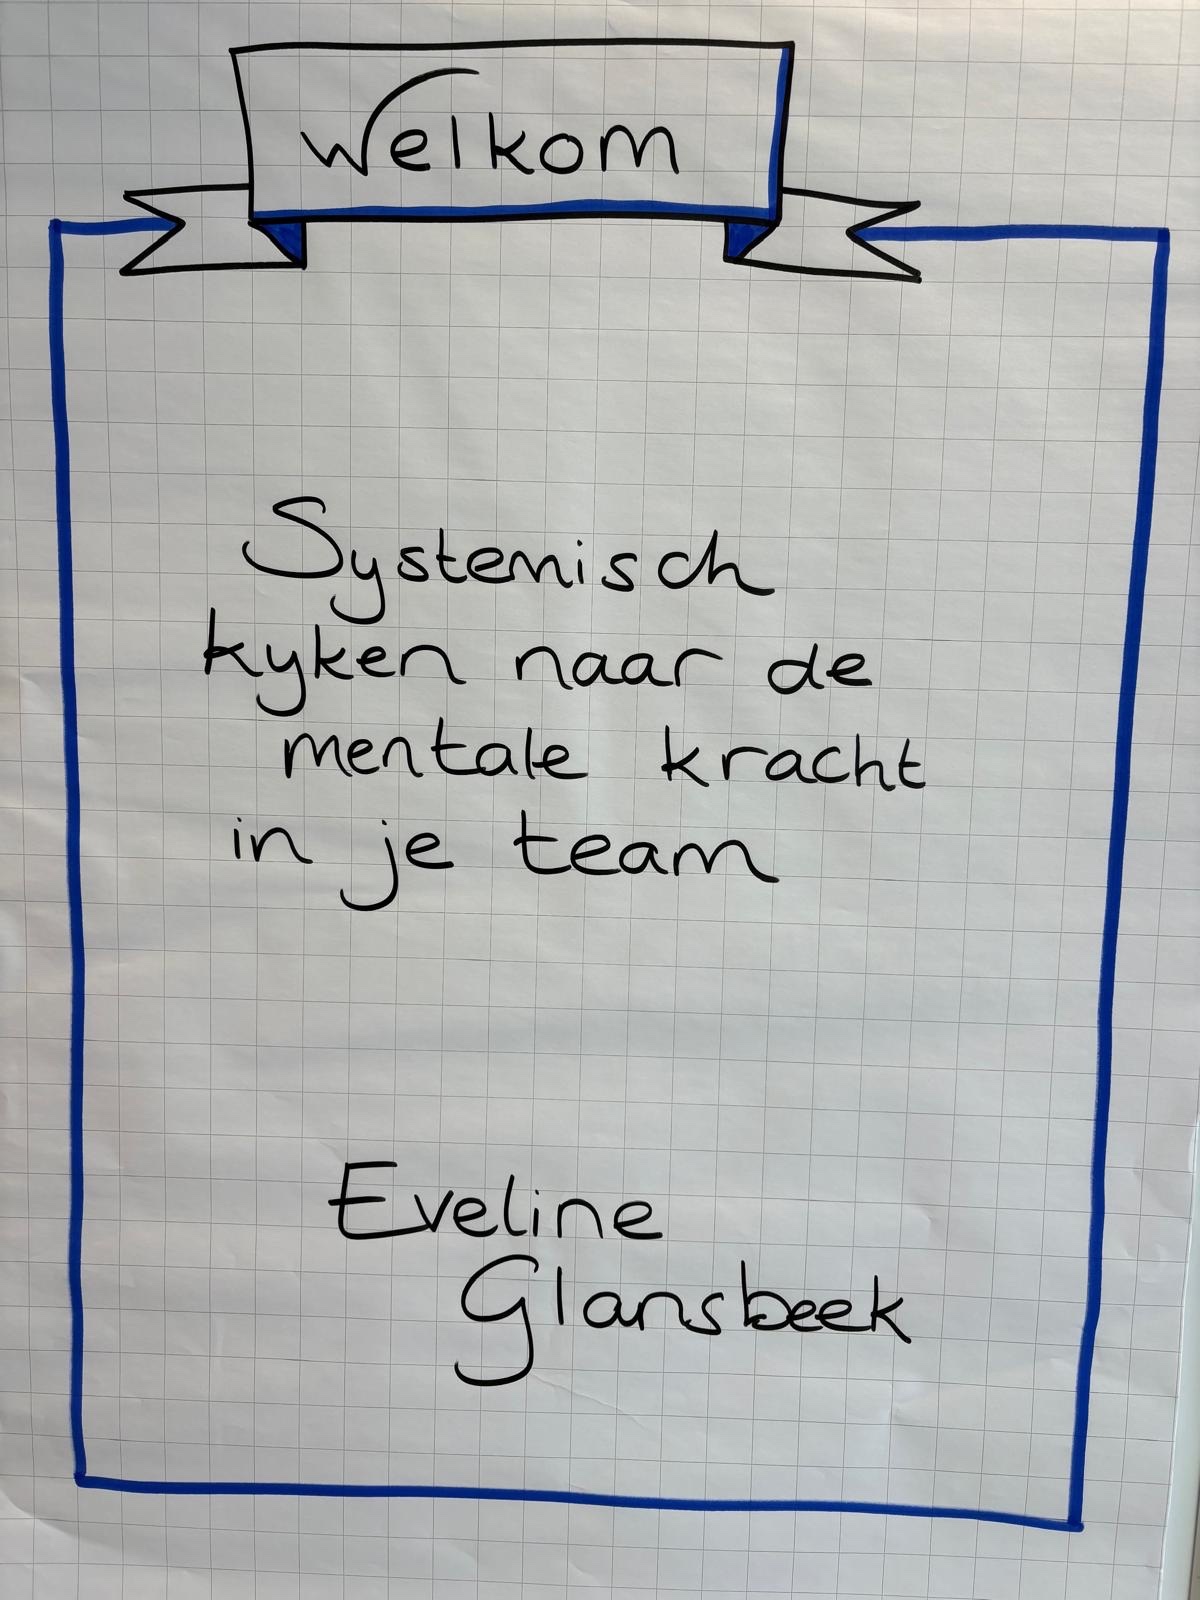 Welkom
Systemisch
kyken naar de
mentale kracht
in je team
Eveline
Glansbeek